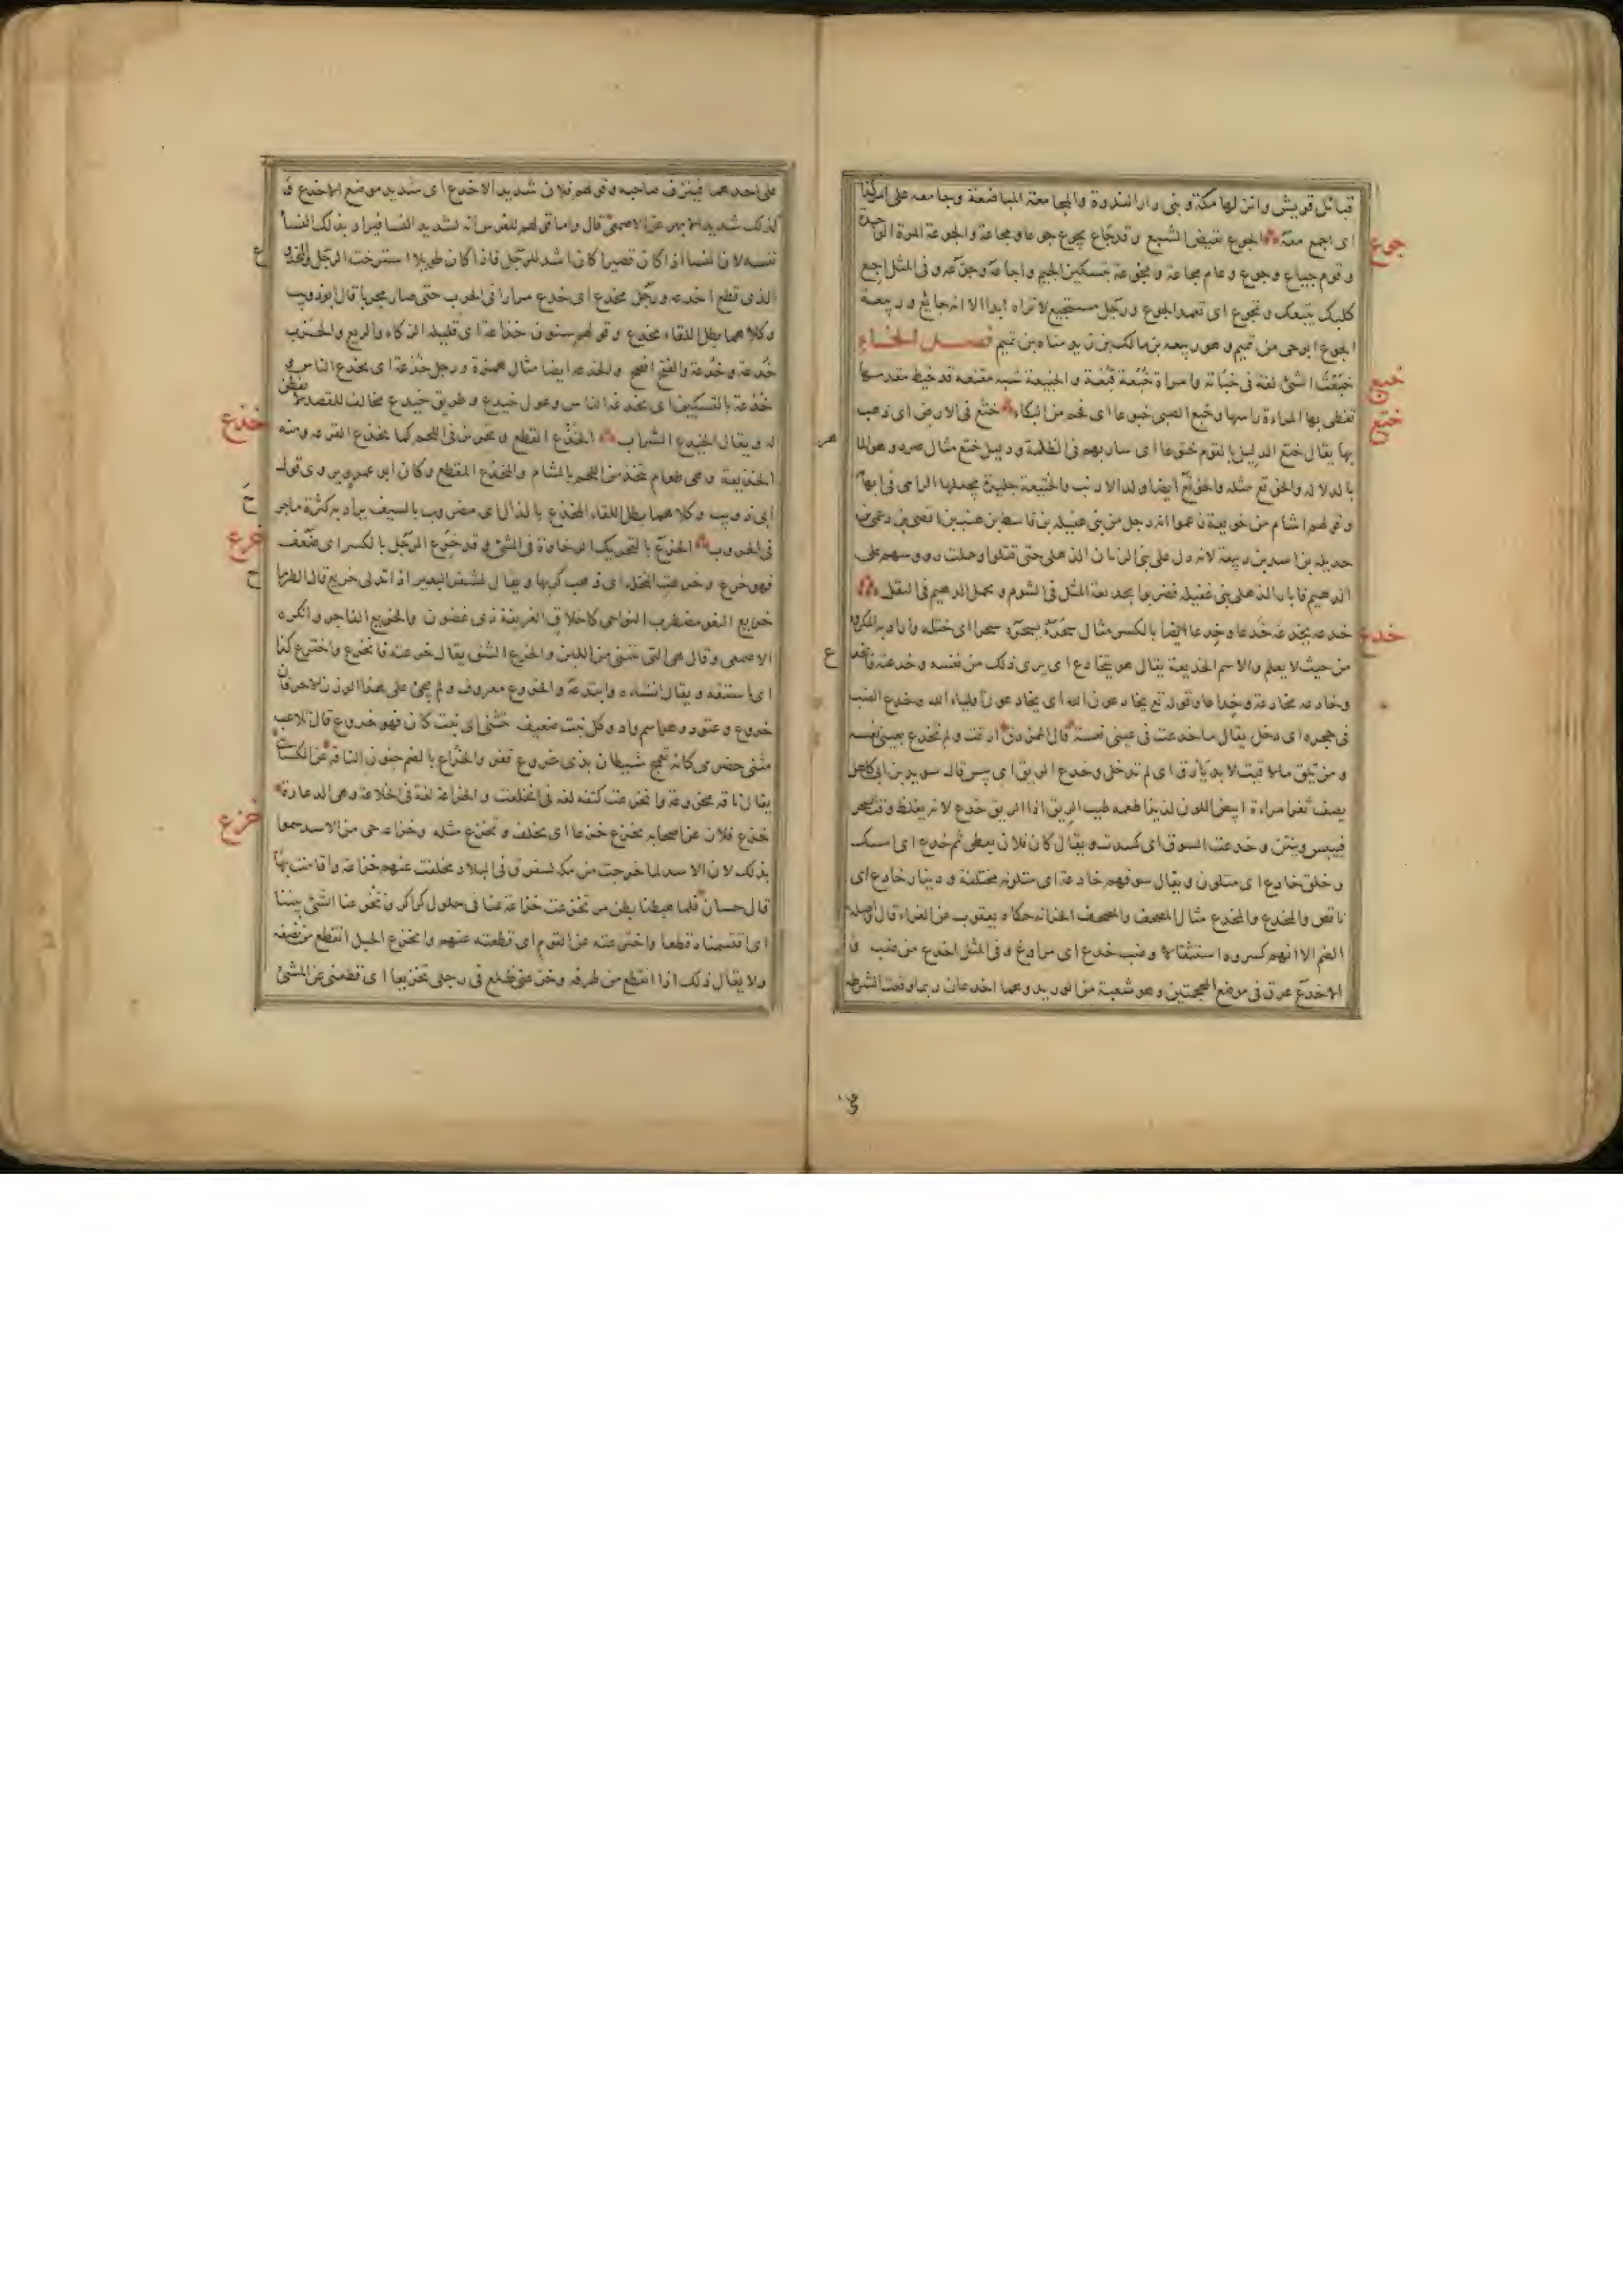 قبائل قريش وانزلها مكة و بنى دار الندوة والمجامعة المباضعة وجامعه على امر كذا
جوع
اى اجمع معه الجوع نقيض الشبع وقد جاع يجوع جوعا ومجاعة والجوعة المرة الواحدة
و قوم جياع وجوع وعام مجاعة و مجوعة بتسكين الجيم واجاعه وجوّعه و فى المثل اجع
كلبك يتبعك و تجوع اى تعمد الجوع ورجل مستجيع لا تراه ابدا الا انه جائع و ربيعة
الجوع ابوحى من تميم وهو ربيعه بن مالك بن زيد مناه بن تميم فصل الخاء
خبع
خبعت الشئ لغة فى خبأته وامراة خُبَعة قُبَعة و الخبيعة شبه مقنعه قد خيط مقدمها
ختع
تغطى بها المراءة راسها وخبع الصبى خبوعا اى فحم من البكاء ختع فى الارض اى ذهب
بها يقال ختع الدليل بالقوم ختوعا اى سار بهم فى الظلمة ودليل ختع مثال صرد وهو الماهر
بالدلالة والخوتع مثله والخوتع ايضا ولد الارنب والختيعة جليدة يجعلها الرامى فى ابهامه
و قولهم اشام من خوتعة زعموا انه رجل من بنى غفيله بن قاسط بن هنب بن افصى بن دعمى بن
جديله بن اسد بن ربيعة لانه دل على بنى الزبان الذهلى حتى قتلوا وحملت رووسهم على
الدهيم فابار الذهلى بنى غفيله فضربوا بخوتعة المثل فى الشوم و بحمل الدهيم فى الثقل
خدع
خدعه يخدعه خَدعا و خِدعا ايضا بالكسر مثال سحره يسحره سحرا اى ختله واراد به المكروه
من حيث لا يعلم والاسم الخديعة يقال هو يتخادع اى يرى ذلك من نفسه وخدعته فانخدع
وخادعه مخادعة وخداعا وقوله تع يخادعون الله اى يخادعون اولياء الله وخدع الضب
فى جحره اى دخل يقال ما خدعت فى عينى نعسة قال الممزق ارقت و لم تخدع بعينى نعسه
و من يلق ما لاقيت لا بد يأرق اى لم تدخل وخدع الريق اى يبس قال سويد بن ابى كاهل
يصف ثغر امراءة ابيض اللون لذيذا طعمه طيب الريق اذا الريق خدع لانه يغلظ وقت السحر
فييبس وينتن وخدعت السوق اى كسدت ويقال كان فلان يعطى ثم خدع اى امسك
وخلق خادع اى متلون ويقال سوقهم خادعة اى متلونه مختلفة و دينار خادع اى
ناقص والمخدع والمخدع مثال المصحف والمصحف الخزانه حكاه يعقوب عن الفراء قال واصله
الضم الا انهم كسروه استثقالا وضب خدع اى مراوغ وفى المثل اخدع من ضب و
الاخدع عرق فى موضع المحجمتين وهو شعبة من الوريد وهما اخدعان ربما وقعت الشرطه
على احدهما فينزف صاحبه وقولهم فلان شديد الاخدع اى شديد موضع الاخدع و
كذلك شديد الابهر عن الاصمعى قال واما قولهم للفرس انه لشديد النسا فيراد بذلك النسا
نفسه لان النسا اذا كان قصيرا كان اشد للرجل فاذا كان طويلا استرخت الرجل والمخدوع
الذى قطع اخدعه ورجل مخدع اى خدع مرارا فى الحرب حتى صار مجربا قال ابو ذويب
وكلاهما بطل اللقاء مخدع وقولهم سنون خداعة اى قليلة الزكاء والريع والحرب
خُدعة وخَدعة والفتح افصح والخدعه ايضا مثال همزة ورجل خُدَعة اى يخدع الناس و
خُدْعة بالتسكين اى يخدعه الناس وغول خيدع وطريق خيدع مخالف للقصد لا يفطن
خذع
له ويقال الخيدع السراب الخَذْع القطع وتحزيز فى اللحم كما يخذع القرع ومنه
الخذيعة وهى طعام يتخذ من اللحم بالشام والمخذع المقطع وكان ابو عمرو يروى قول
ابى ذويب وكلاهما بطل اللقاء مخذع بالذال اى مضروب بالسيف يراد به كثرة ما جرح
خرع
فى الحروب الخرع بالتحريك الرخاوة فى الشئ وقد خرع الرجل بالكسر اى ضعف
فهو خرع وخرعت النخلة اى ذهب كربها ويقال لمشفر البعير اذا تدلى خريع قال الطرماح
خريع النعو مضطرب النواحى كاخلاق الغريفة ذى غضون والخريع الفاجر وانكره
الاصمعى وقال هى التى تتثنى من اللين والخرع الشق يقال خرعته فانخرع واخترع كذا
اى اشتقه ويقال انشاءه وابتدعه والخروع معروف ولم يجئ على هذا الوزن الا حرفان
خروع وعتود وهو اسم واد وكل نبت ضعيف يتثنى اى نبت كان فهو خروع قال تلاعب
مثنى حضرمى كانه تعمج شيطان بذى خروع قفر والخراع بالضم جنون الناقه عن الكسائى
يقال ناقه مخروعة وانخرعت كتفه لغه فى انخلعت والخراعة لغة فى الخلاعة وهى الدعارة
خزع
خزع فلان عن اصحابه يخزع خزعا اى تخلف وتخزع مثله وخزاعه حى من الاسد سموا
بذلك لان الاسد لما خرجت من مكه لتتفرق فى البلاد تخلفت عنهم خزاعة واقامت بها
قال حسان فلما هبطنا بطن مر تخزعت خزاعة عنا فى حلول كراكر وتخزعنا الشئ بيننا
اى اقتسمناه قطعا واختزعته عن القوم اى قطعته عنهم وانخزع الحبل انقطع من نصفه
ولا يقال ذلك اذا انقطع من طرفه وخزعنى ظلع فى رجلى تخزيعا اى قطعنى عن المشى